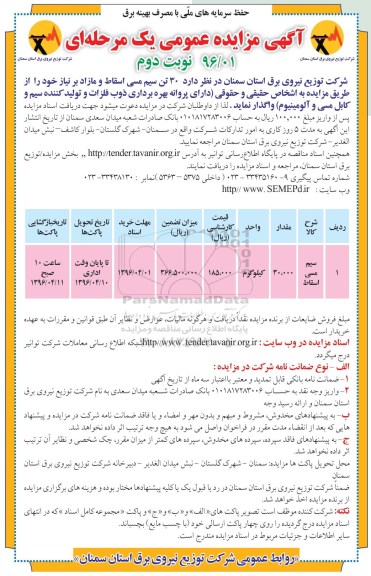 حفظ سرمایه های ملّی با مصرف بهینه برق
آگهی مزایده عمومی یک مرحله‌ای
۹۶/۰۱ نوبت دوم
شرکت توزیع نیروی برق استان سمنان
شرکت توزیع نیروی برق استان سمنان
شرکت توزیع نیروی برق استان سمنان در نظر دارد ۳۰ تن سیم مسی اسقاط و مازاد بر نیاز خود را از
طریق مزایده به اشخاص حقیقی و حقوقی (دارای پروانه بهره برداری ذوب فلزات و تولیدکننده سیم و
کابل مسی و آلومینیوم) واگذار نماید. لذا از داوطلبان شرکت در مزایده دعوت میشود جهت دریافت اسناد مزایده
پس از واریز مبلغ ۱۰۰,۰۰۰ ریال به حساب ۰۱۰۱۸۱۷۲۸۳۰۰۶ بانک صادرات شعبه میدان سعدی سمنان از تاریخ انتشار
این آگهی به مدت ۵ روز کاری به امور تدارکات شرکت واقع در سمنان- شهرک گلستان- بلوار کاشف- نبش میدان
الغدیر- شرکت توزیع نیروی برق استان سمنان مراجعه نمایید.
همچنین اسناد مناقصه در پایگاه اطلاع رسانی توانیر به آدرس http://tender.tavanir.org.ir بخش مزایده/توزیع
برق استان سمنان، مراجعه و اسناد مزایده را دریافت نمایند.
شماره تماس پیگیری ۹- ۳۳۴۳۵۱۶۰-۰۲۳ ( داخلی ۵۳۷۵ – ۵۳۶۳ )نمابر : ۳۳۴۳۸۱۳۰-۰۲۳
وب سایت : http:// www. SEMEPd.ir
ردیف شرح کالا مقدار واحد قیمت کارشناسی (ریال) میزان تضمین (ریال) مهلت خرید اسناد تاریخ تحویل پاکت‌ها تاریخ بازگشایی پاکت‌ها
۱ سیم مسی اسقاط ۳۰,۰۰۰ کیلوگرم ۱۸۵,۰۰۰ ۳۶۶,۵۰۰,۰۰۰ ۱۳۹۶/۰۴/۰۱ تا پایان وقت اداری ۱۳۹۶/۰۴/۱۰ ساعت ۱۰ صبح ۱۳۹۶/۰۴/۱۱
ParsNamadData
پایگاه اطلاع رسانی مناقصه و مزایده
مبلغ فروش ضایعات از برنده مزایده نقداً دریافت و هرگونه مالیات، عوارض و نظایر آن طبق قوانین و مقررات به عهده
خریدار است.
اسناد مزایده در وب سایت : http://www.tender.tavanir.org.ir شبکه اطلاع رسانی معاملات شرکت توانیر
درج میگردد.
الف – نوع ضمانت نامه شرکت در مزایده :
۱- ضمانت نامه بانکی قابل تمدید و معتبر با اعتبار سه ماه از تاریخ آگهی
۲- واریز وجه نقد به حساب ۰۱۰۱۸۱۷۲۸۳۰۰۶ بانک صادرات شعبه میدان سعدی به نام شرکت توزیع نیروی برق
استان سمنان و ارائه رسید وجه
ب- به پیشنهادهای مخدوش، مشروط و مبهم و بدون مهر و امضاء و یا فاقد ضمانت نامه شرکت در مزایده و پیشنهاد
هایی که بعد از انقضاء مدت مقرر در فراخوان واصل می شود به هیچ وجه ترتیب اثر داده نخواهد شد.
ج- به پیشنهادهای فاقد سپرده، سپرده های مخدوش، سپرده های کمتر از میزان مقرر، چک شخصی و نظایر آن ترتیب
اثر داده نخواهد شد.
محل تحویل پاکت ها مزایده: سمنان – شهرک گلستان – نبش میدان الغدیر – دبیرخانه شرکت توزیع نیروی برق استان
سمنان
ضمناً شرکت توزیع نیروی برق استان سمنان در رد یا قبول یک یا کلیه پیشنهادها مختار بوده و هزینه های برگزاری مزایده
از برنده مزایده اخذ خواهد شد.
نکته: شرکت کننده موظف است تصویر پاکت های« الف» و« ب» و« ج» و پاکت « مجموعه کامل اسناد» که در انتهای
اسناد مزایده درج گردیده را روی چهار پاکت ارسالی خود (با چسب مایع) بچسباند.
سایر اطلاعات و جزئیات مربوط در اسناد مزایده مندرج است.
«روابط عمومی شرکت توزیع نیروی برق استان سمنان»